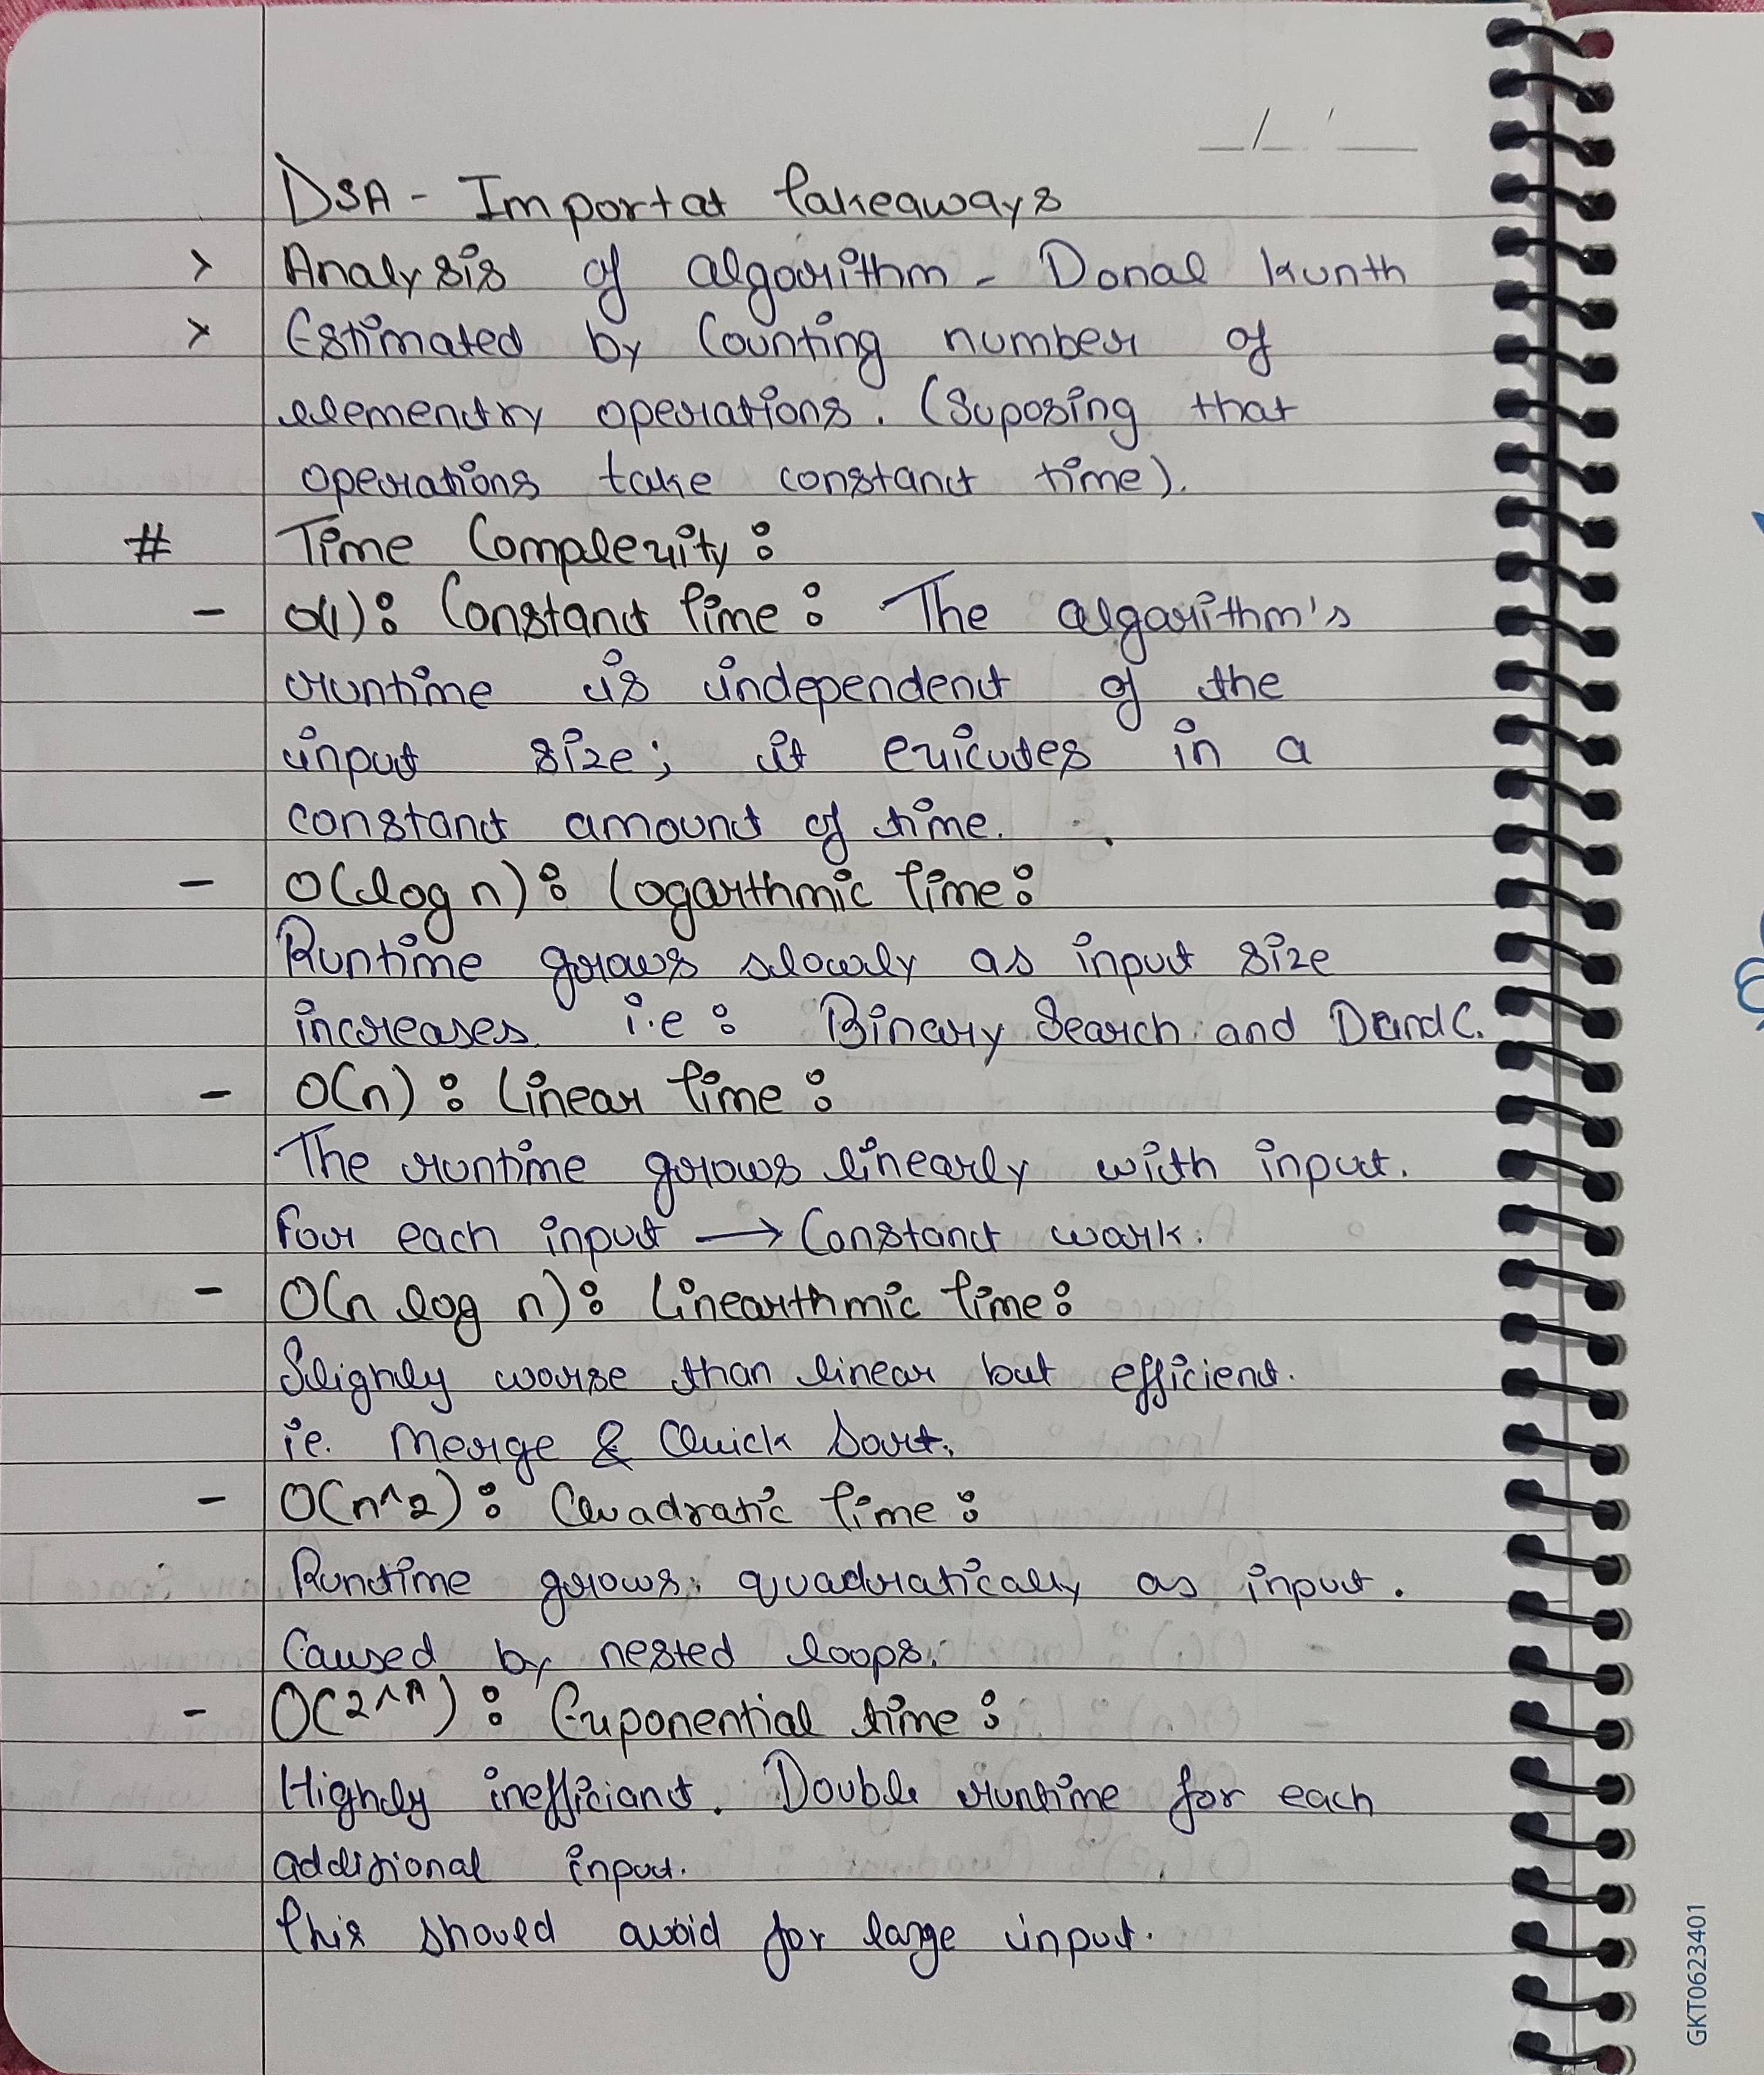 DSA - Importat takeaways
> Analysis of algorithm - Donal Kunth
> Estimated by Counting number of
elementry operations. (Suposing that
operations take constant time).
# Time Complexity:
- O(1): Constant Time: The algorithm's
runtime is independent of the
input size; it exicutes in a
constant amount of time.
- O(log n): Logarithmic Time:
Runtime grows slowly as input size
increases. i.e: Binary Search and DandC.
- O(n): Linear Time:
The runtime grows linearly with input.
For each input → Constant work.
- O(n log n): Linearithmic Time:
Slighly worse than linear but efficient.
ie. Merge & Quick Sort.
- O(n^2): Quadratic Time:
Runtime grows quadratically as input.
Caused by nested loops.
- O(2^n): Exponential time:
Highly inefficiant. Double runtime for each
additional input.
This should avoid for large input.
GKT0623401